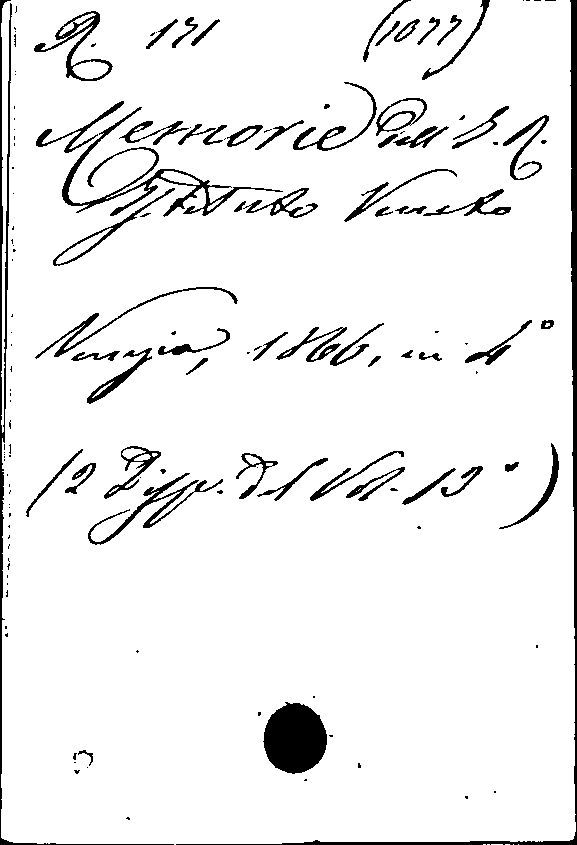 R. 171 (1077)
Memorie dell' I. R.
Istituto Veneto
Venezia, 1866, in 4°
(2 Disp. del Vol. 13°)